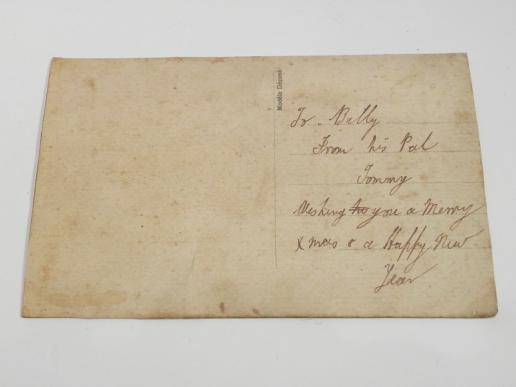 Modèle Déposé
To. Billy
From his Pal
Tommy
Wishing you a Merry
Xmas & a Happy New
Year